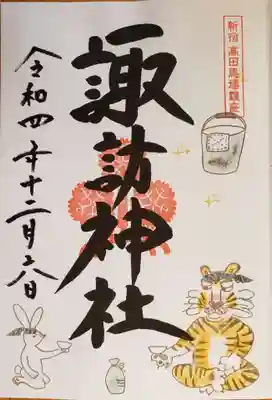 新宿 高田馬場鎮座
諏訪神社
令和四年十二月二八日